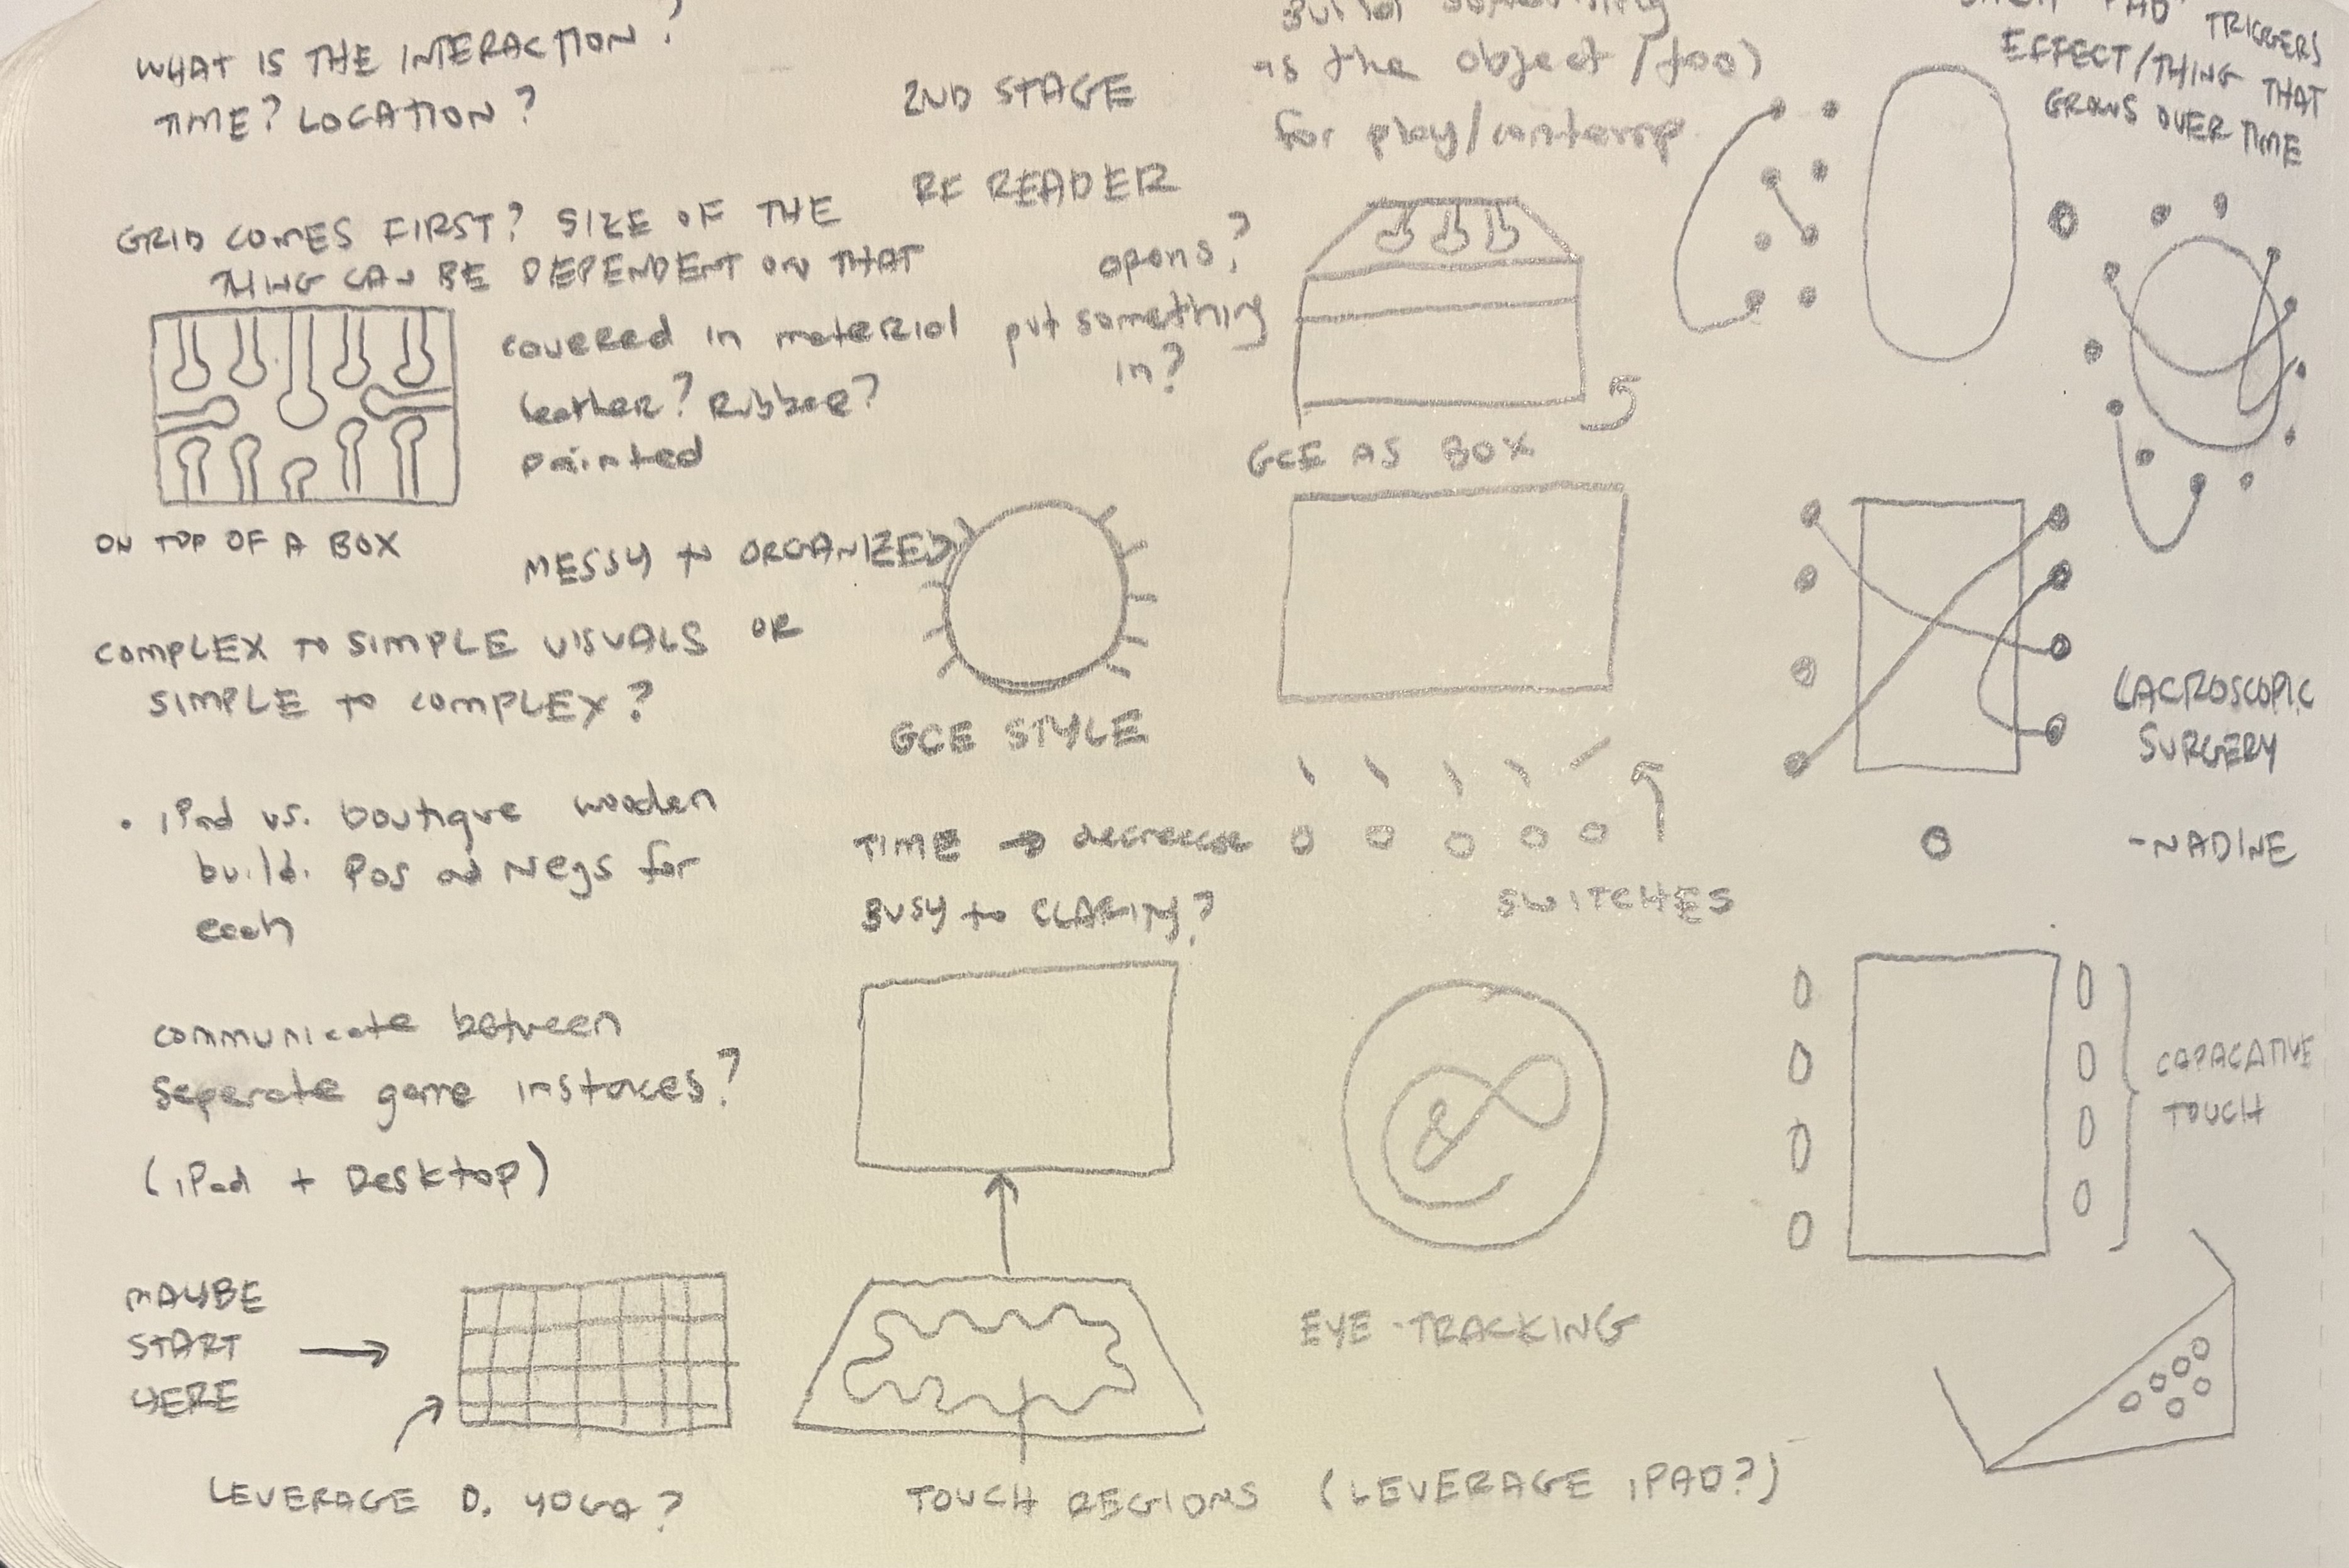 WHAT IS THE INTERACTION?
TIME? LOCATION?
GRID COMES FIRST? SIZE OF THE
THING CAN BE DEPENDENT ON THAT
covered in material
leather? Rubber?
painted
ON TOP OF A BOX
MESSY to ORGANIZED
COMPLEX TO SIMPLE VISUALS OR
SIMPLE to COMPLEX?
• iPad vs. boutique wooden
build. Pos and Negs for
each
communicate between
seperate game instances?
(iPad + Desktop)
MAYBE
START
HERE
LEVERAGE D. YOGA?
2ND STAGE
RF READER
opens?
put something
in?
GCE STYLE
TIME → decrease
BUSY to CLARITY?
TOUCH REGIONS (LEVERAGE iPAD?)
Build something
as the object/tool
for play/contemp
GCE AS BOX
SWITCHES
EYE-TRACKING
PAD TRIGGERS
EFFECT/THING THAT
GROWS OVER TIME
LACROSCOPIC
SURGERY
-NADINE
CAPACATIVE
TOUCH